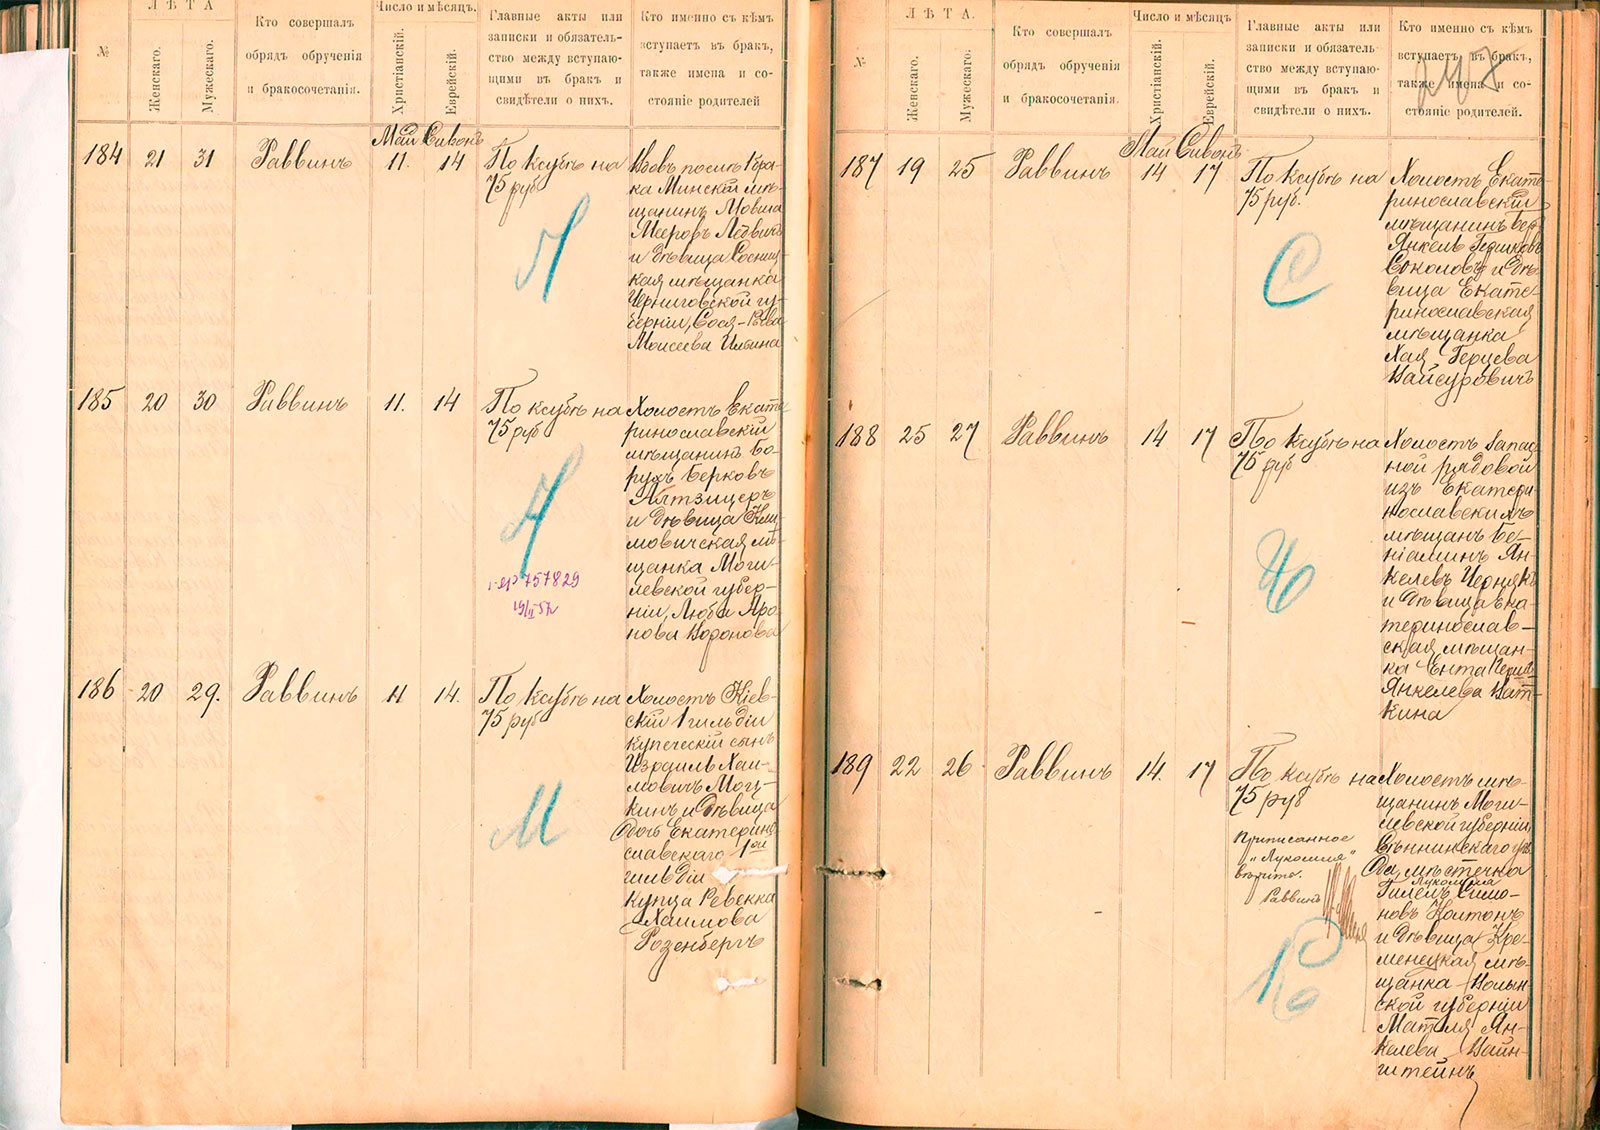 №
ЛѢТА
Женскаго.
Мужескаго.
Кто совершалъ
обрядъ обрученія
и бракосочетанія.
Число и мѣсяцъ.
Христіанскій.
Еврейскій.
Главные акты или
записки и обязатель-
ство между вступаю-
щими въ бракъ и
свидѣтели о нихъ.
Кто именно съ кѣмъ
вступаетъ въ бракъ,
также имена и со-
стояніе родителей
184
21
31
Раввинъ
Май Сивонъ
11. 14
По ксубѣ на
75 руб
Вдовъ послѣ 1 бра-
ка Минскій мѣ-
щанинъ Мовша
Мееровъ
и дѣвица Сосниц-
кая мѣщанка
Черниговской гу-
берніи, Сося-Рева
Моисеева Ильина
185
20
30
Раввинъ
11. 14
По ксубѣ на
75 руб
Холостъ Екате-
ринославскій
мѣщанинъ Бо-
рухъ Берковъ
Алтзицеръ
и дѣвица Кли-
мовичская мѣ-
щанка Моги-
левской губер-
ніи, Люба Аро-
нова Воронова
757829
186
20
29.
Раввинъ
11 14.
По ксубѣ на
75 руб
М
Холостъ Кіев-
скій 1 гильдіи
купеческій сынъ
Израиль Хаи-
мовичъ Моц-
кинъ и дѣвица
дочь Екатерино
славскаго 1ой
гильдіи
купца Ревекка
Хаимова
Розенбергъ
№
ЛѢТА.
Женскаго.
Мужескаго.
Кто совершалъ
обрядъ обрученія
и бракосочетанія
Число и мѣсяцъ
Христіанскій.
Еврейскій.
Главные акты или
записки и обязатель-
ство между вступаю-
щими въ бракъ и
свидѣтели о нихъ.
Кто именно съ кѣмъ
вступаетъ въ бракъ,
также имена и со-
стояніе родителей.
187
19
25
Раввинъ
Май Сивонъ
14 17
По ксубѣ на
75 руб.
С
Холостъ Екате-
ринославскій
мѣщанинъ Бер-
Янкель Гершковъ
Соколовъ и дѣ-
вица Екате-
ринославская
мѣщанка
Хая Герцева
Вайсуровичъ
188
25
27
Раввинъ
14 17
По ксубѣ на
75 руб
Ч
Холостъ запас-
ной рядовой
изъ Екатери-
нославскихъ
мѣщанъ Бе-
ніаминъ Ян-
келевъ Чернякъ
и дѣвица Ека-
теринослав-
ская мѣщан-
ка Ента
Янкелева Ват-
кина
189
22
26
Раввинъ
14. 17
По ксубѣ на
75 руб
Приписанное
"Лукомля"
вѣрите.
Раввинъ
К
Холостъ мѣ-
щанинъ Моги-
левской губерніи,
Сѣннинскаго уѣз-
да, мѣстечка
Лукомля
Гилель Симо-
новъ Койтонъ
и дѣвица Кре-
менецкая мѣ-
щанка Волын-
ской губерніи
Матля Ян-
келева Вайн-
штейнъ